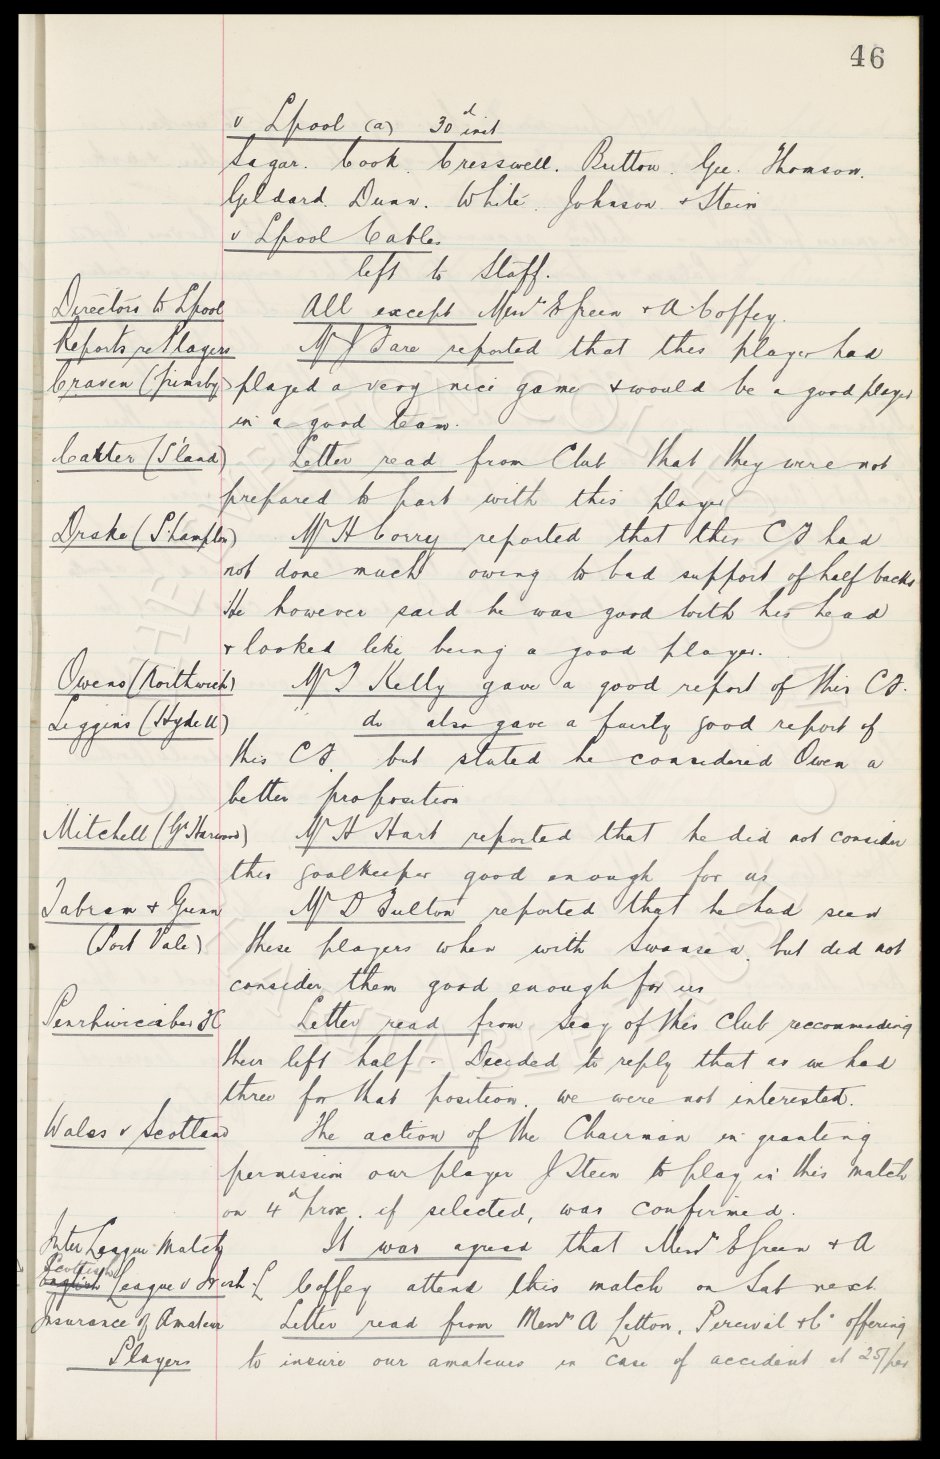 46
v Lpool (a) 30d inst
Sagar. Cook. Cresswell. Britton. Gee. Thomson.
Geldard. Dunn. White. Johnson & Stein
v Lpool Cables
left to Staff.
Directors to Lpool All except Messrs E Green & A Coffey.
Reports re Players Mr J Fare reported that this player had
Craven (Grimsby) played a very nice game & would be a good player
in a good team.
Carter (S'land) Letter read from Club that they were not
prepared to part with this player
Drake (S'hampton) Mr H Corry reported that this C F had
not done much owing to bad support of half backs
He however said he was good with his head
& looked like being a good player.
Owens (Northwich) Mr T Kelly gave a good report of this C F.
Liggins (Hyde U) do also gave a fairly good report of
this C F. but stated he considered Owen a
better proposition
Mitchell (Gt Harwood) Mr H Hart reported that he did not consider
this goalkeeper good enough for us
Tabram & Gunn Mr D Fulton reported that he had seen
(Port Vale) these players when with Swansea, but did not
consider them good enough for us
Penrhiwceiber FC Letter read from Secy of this Club reccommending
their left half. Decided to reply that as we had
three for that position, we were not interested.
Wales v Scotland The action of the Chairman in granting
permission our player J Stein to play in this match
on 4th prox. if selected, was confirmed.
Inter League Match It was agreed that Messrs E Green & A
Scottish
English League v Irish L Coffey attend this match on Sat next.
Insurance of Amateur Letter read from Messrs A Letton, Percival & Co offering
Players to insure our amateurs in case of accident at 25/ per